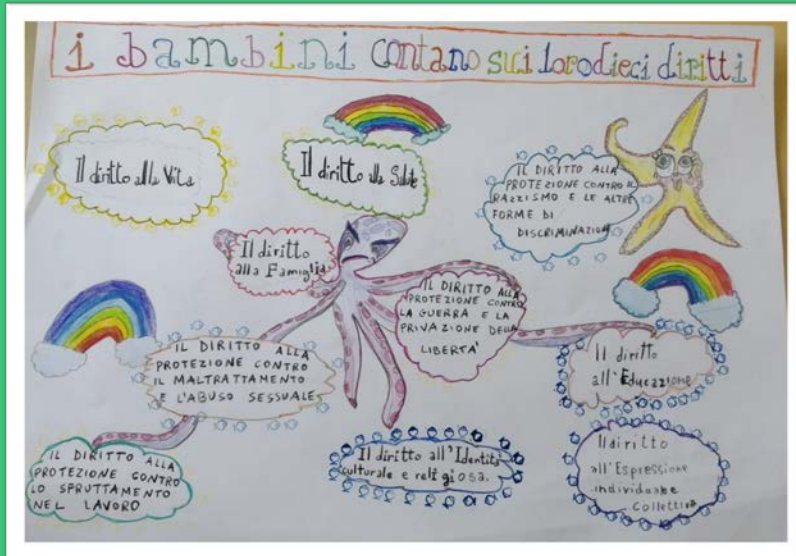 i bambini contano sui loro dieci diritti
Il diritto alla Vita
Il diritto alla Salute
IL DIRITTO ALLA
PROTEZIONE CONTRO IL
RAZZISMO E LE ALTRE
FORME DI
DISCRIMINAZIONE
Il diritto
alla Famiglia
IL DIRITTO ALLA
PROTEZIONE CONTRO
LA GUERRA E LA
PRIVAZIONE DELLA
LIBERTA'
IL DIRITTO ALLA
PROTEZIONE CONTRO
IL MALTRATTAMENTO
E L'ABUSO SESSUALE
Il diritto
all'Educazione
IL DIRITTO ALLA
PROTEZIONE CONTRO
LO SPRUTTAMENTO
NEL LAVORO
Il diritto all'Identità
culturale e religiosa.
Il diritto
all'Espressione
individuale e
collettiva